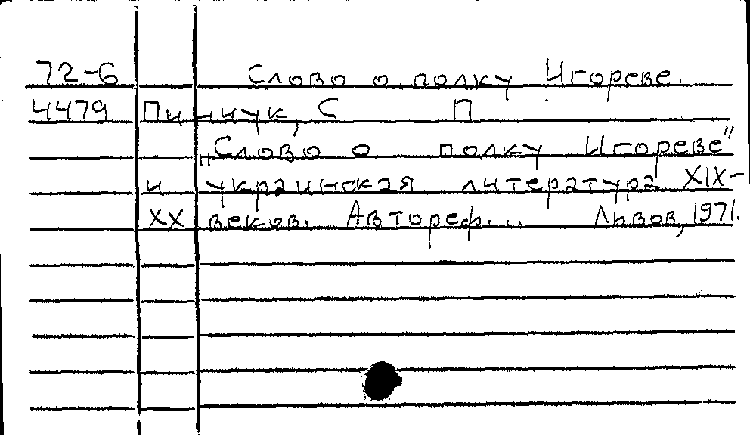 72-6 Слово о полку Игореве.
4479 Пинчук, С П
„Слово о полку Игореве"
и украинская литература XIX-
XX веков. Автореф... Львов, 1971.